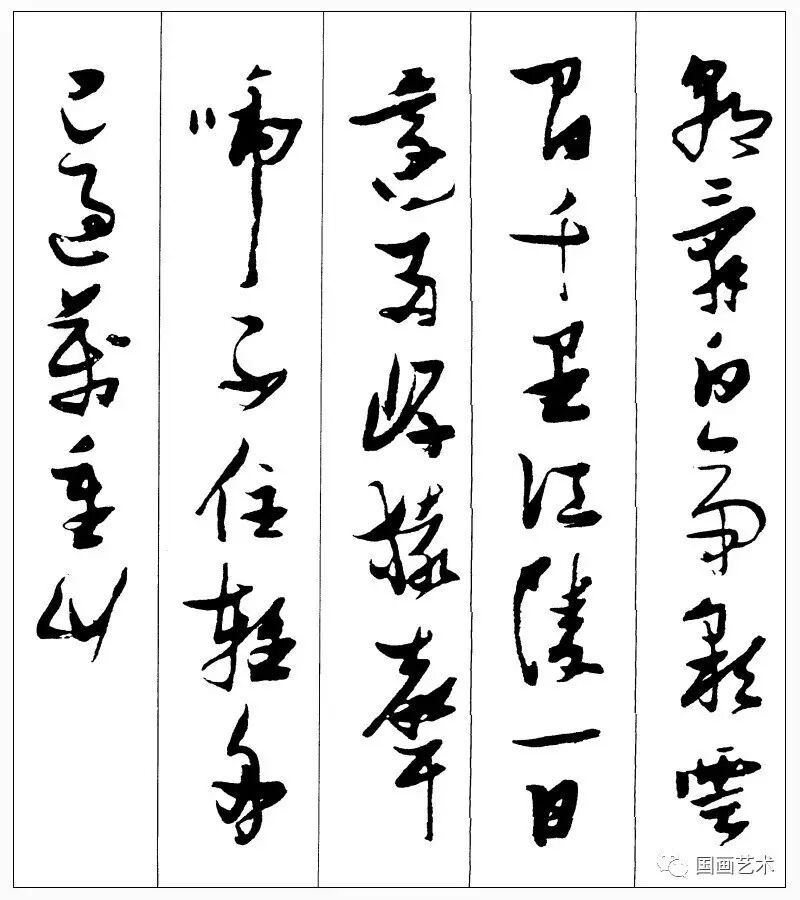 朝辭白帝彩雲
間千里江陵一日
還兩岸猿聲
啼不住輕舟
已過萬重山
国画艺术